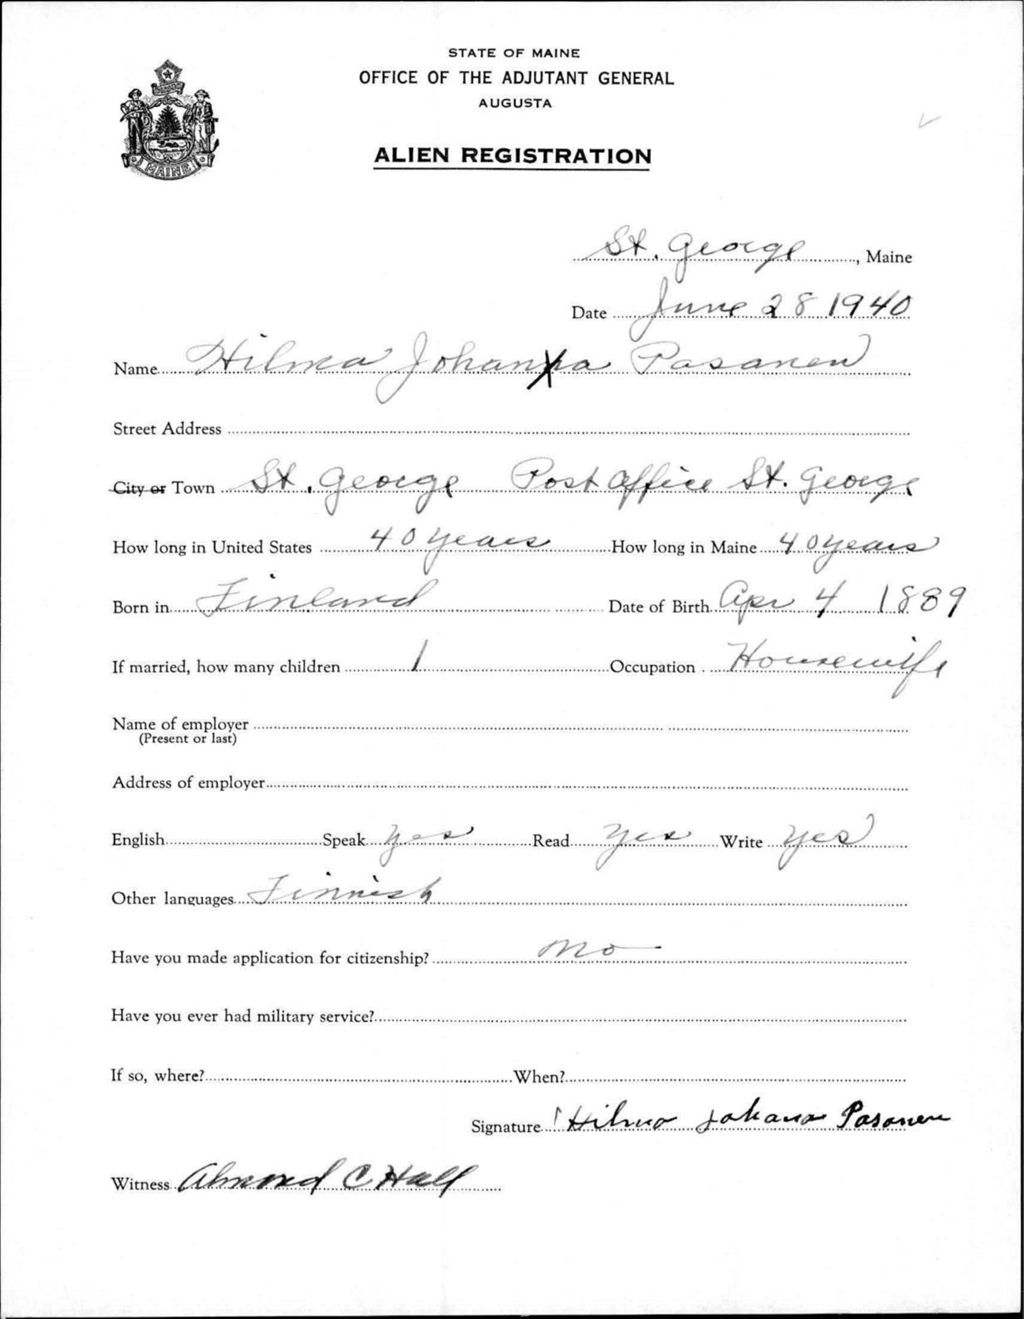 STATE OF MAINE
OFFICE OF THE ADJUTANT GENERAL
AUGUSTA
ALIEN REGISTRATION
MAINE
St. George, Maine
Date June 28 1940
Name Hilma Johanna Pasanen
Street Address
City or Town St. George Post Office St. George
How long in United States 40 years How long in Maine 40 years
Born in Finland Date of Birth Apr 4 1889
If married, how many children 1 Occupation Housewife
Name of employer
(Present or last)
Address of employer
English Speak Yes Read Yes Write Yes
Other languages Finnish
Have you made application for citizenship? No
Have you ever had military service?
If so, where? When?
Signature Hilma Johana Pasanen
Witness Almond C Hall